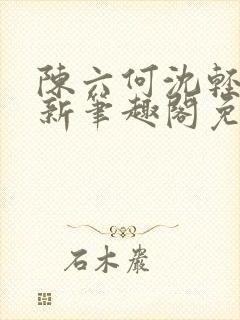 陳六何沈輕
新筆趣閣免
石木巖